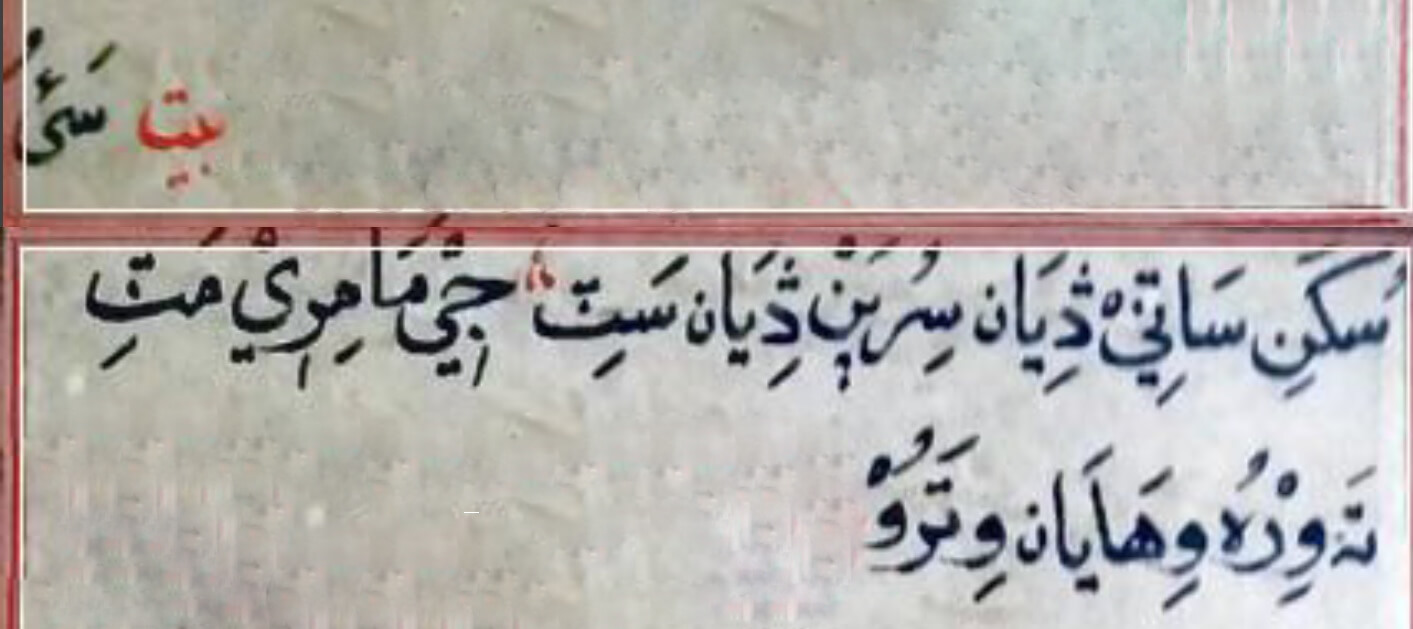 بيت سَئُ
سُکَنِ سَاتِيْ ڎِيَان سِرُيَنْ ڎِيَان سَتِ جِيْ مَا مِرِيْ مَتِ
تَہ وِرْهُ وِهَايَان وِتَرُوْ